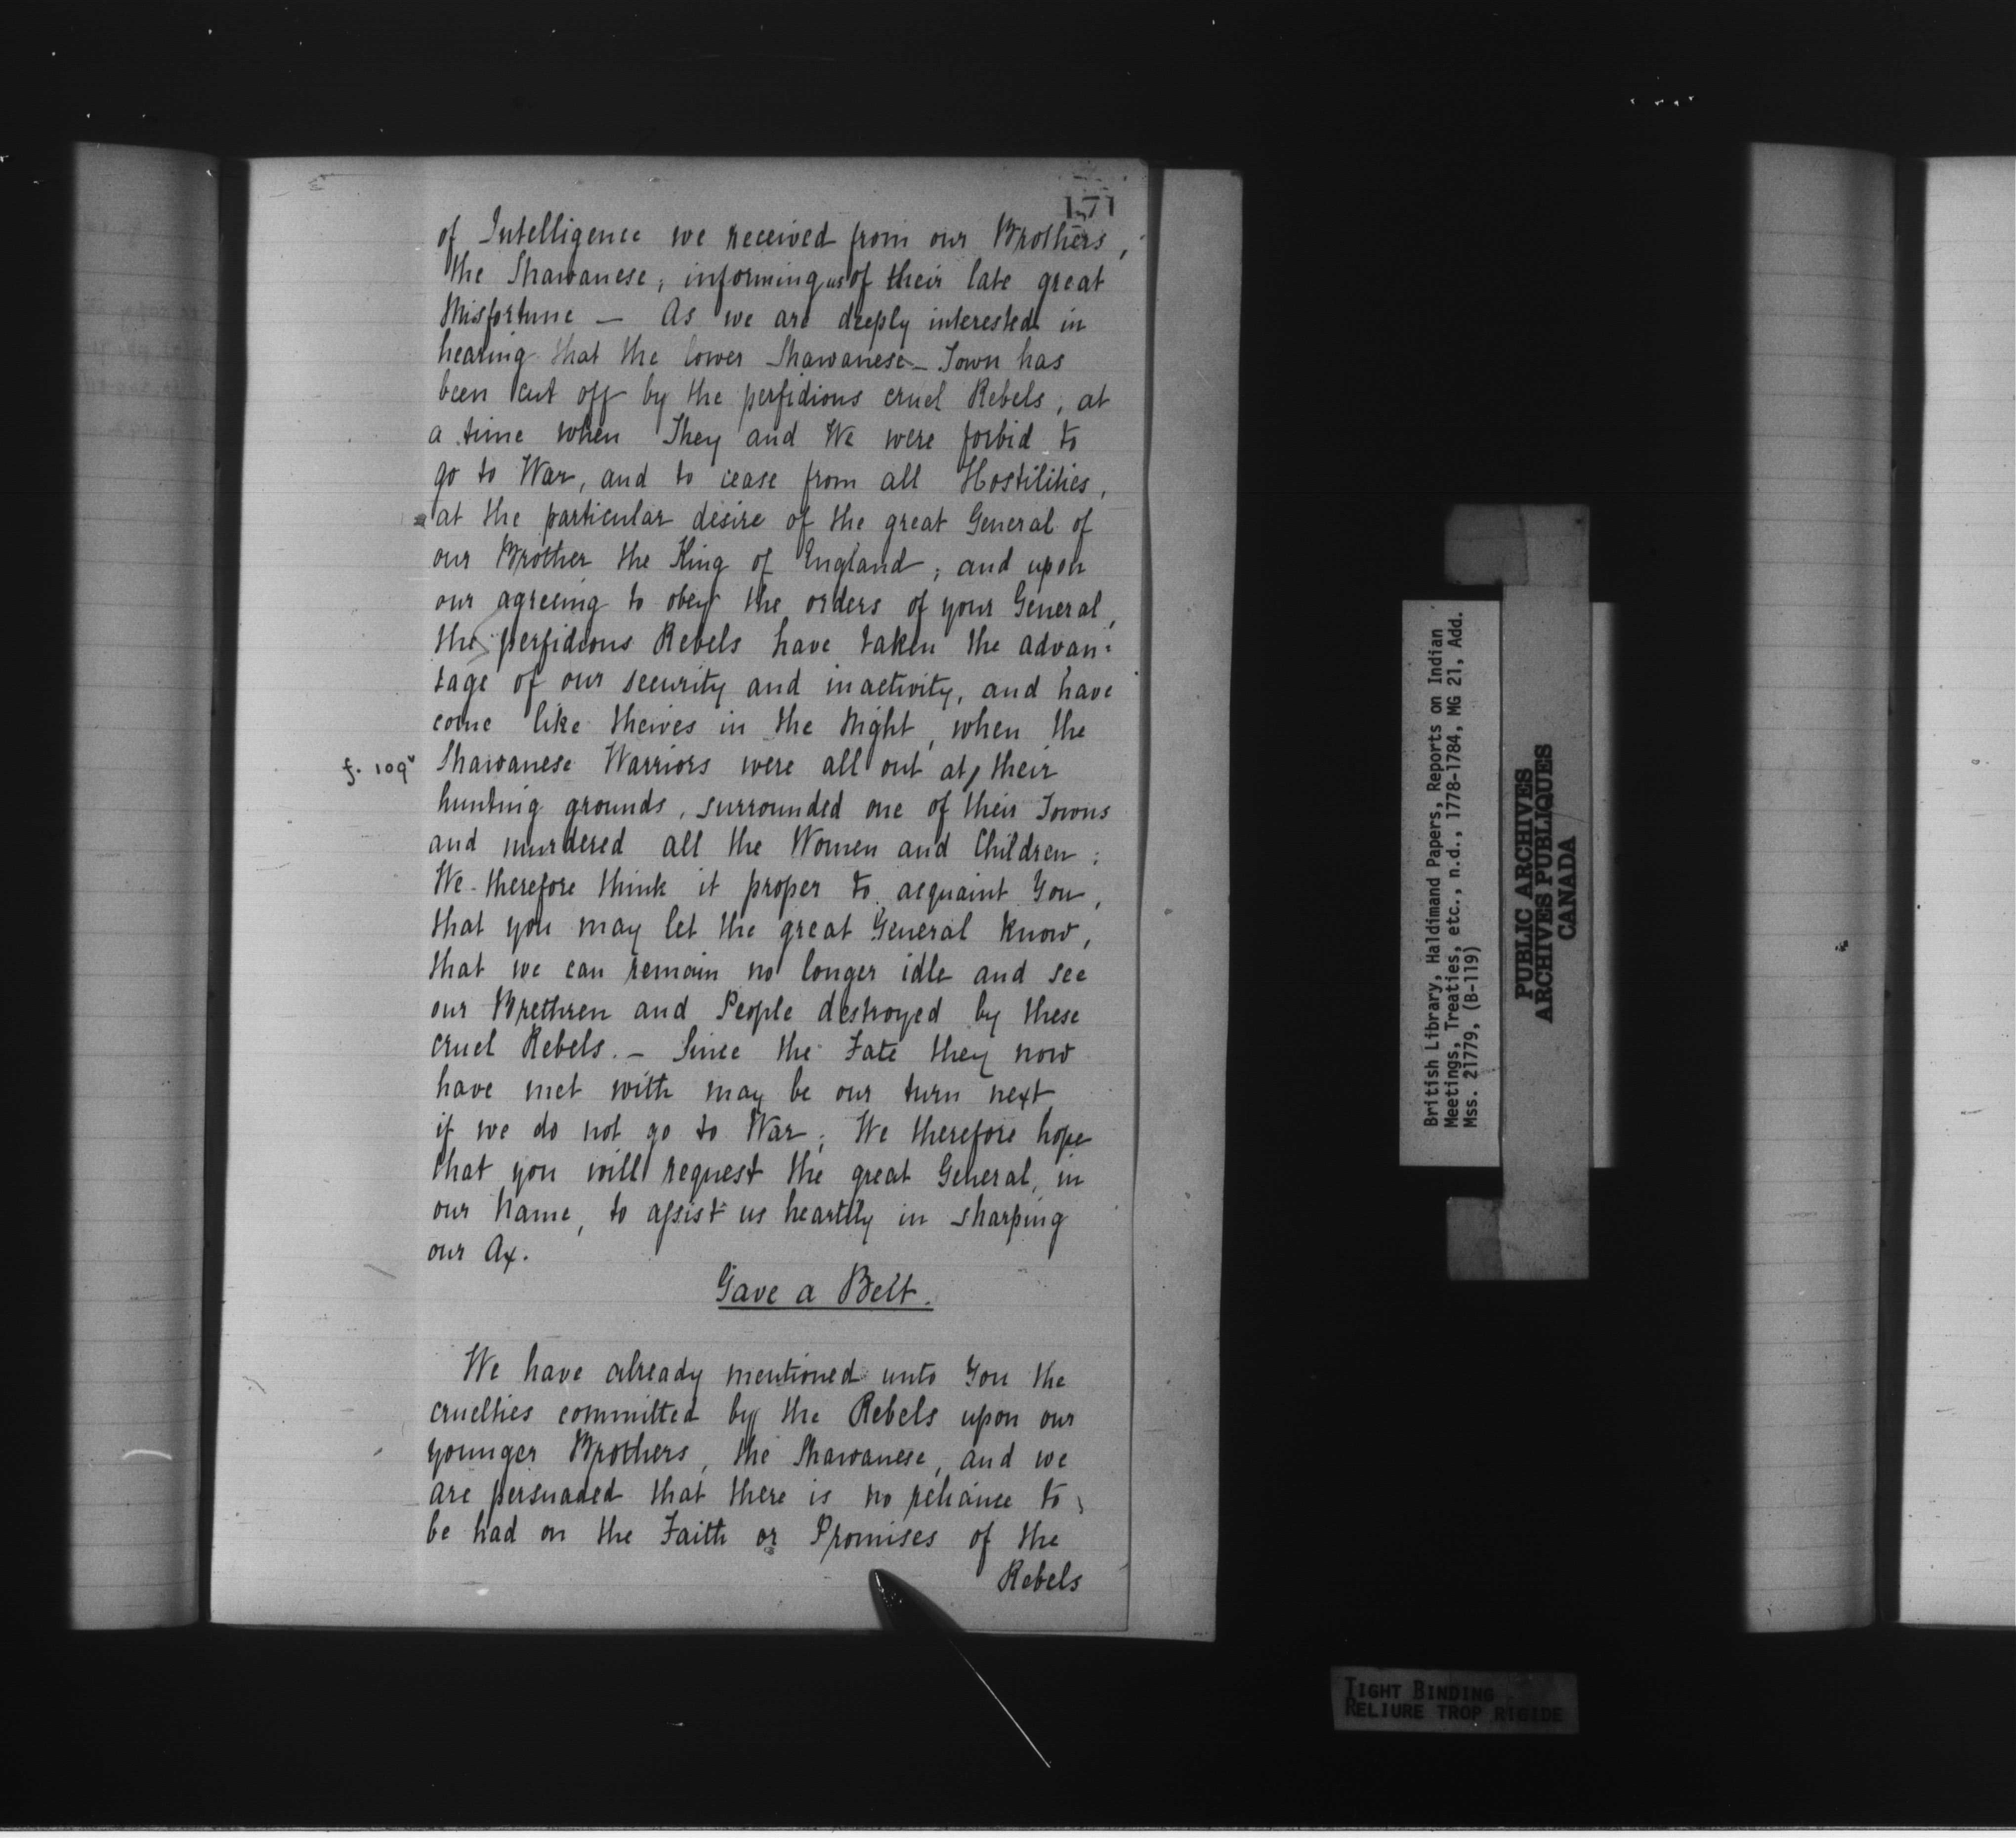 171
of Intelligence we received from our Brothers,
the Shawanese, informing us of their late great
Misfortune — As we are deeply interested in
hearing that the lower Shawanese - Town has
been cut off by the perfidious cruel Rebels, at
a time when They and We were forbid to
go to War, and to cease from all Hostilities,
at the particular desire of the great General of
our Brother the King of England, and upon
our agreeing to obey the orders of your General,
the perfidious Rebels have taken the advan-
tage of our security and inactivity, and have
come like theives in the Night, when the
f. 109v Shawanese Warriors were all out at their
hunting grounds, surrounded one of their Towns
and murdered all the Women and Children:
We therefore think it proper to acquaint You,
that you may let the great General know,
that we can remain no longer idle and see
our Brethren and People destroyed by these
cruel Rebels. - Since the Fate they now
have met with may be our turn next
if we do not go to War; We therefore hope
that you will request the great General, in
our Name, to assist us heartily in sharping
our Ax.
Gave a Belt.
We have already mentioned unto You the
cruelties committed by the Rebels upon our
younger Brothers, the Shawanese, and we
are persuaded that there is no reliance to
be had on the Faith or Promises of the
Rebels
British Library, Haldimand Papers, Reports on Indian
Meetings, Treaties, etc., n.d., 1778-1784, MG 21, Add.
Mss. 21779, (B-119)
PUBLIC ARCHIVES
ARCHIVES PUBLIQUES
CANADA
TIGHT BINDING
RELIURE TROP RIGIDE